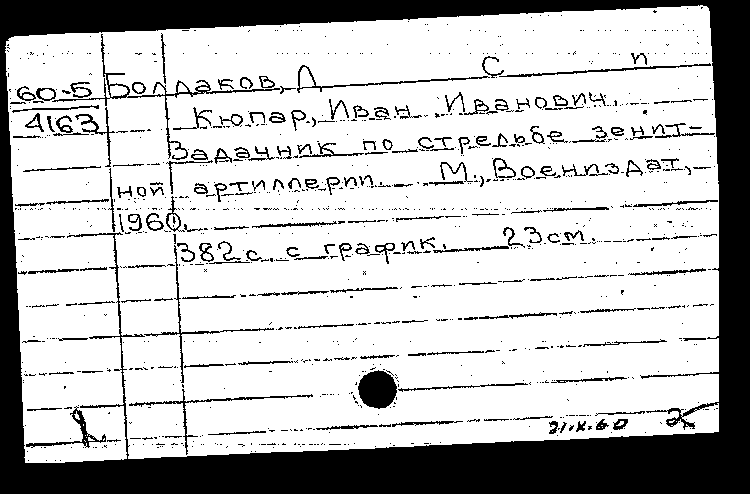 60-5 Болдаков, Л С п
4163 Кюпар, Иван Иванович.
Задачник по стрельбе зенит-
ной артиллерии. М., Воениздат,
1960.
382 с. с график. 23 см.
21.X.60